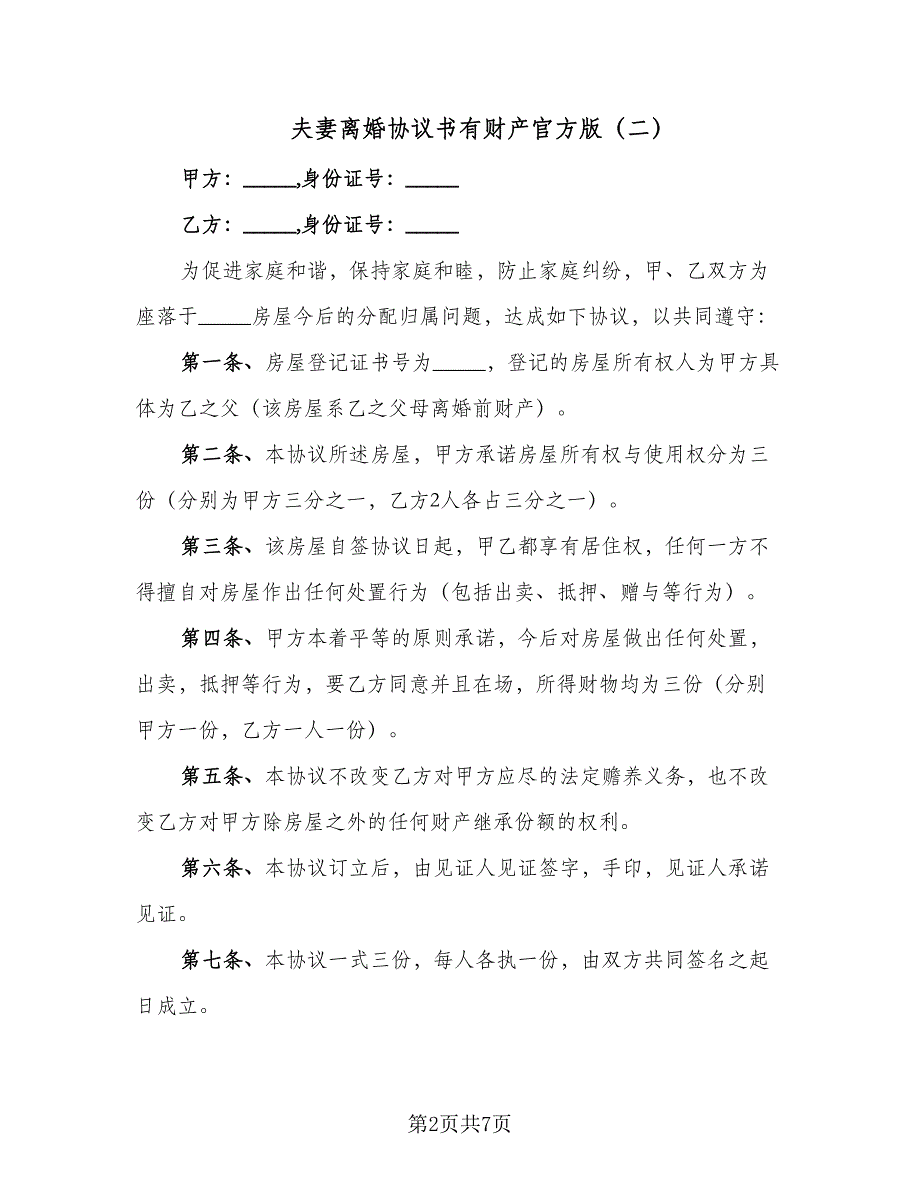 夫妻离婚协议书有财产官方版（二）
甲方：_____,身份证号：_____
乙方：_____,身份证号：_____
为促进家庭和谐，保持家庭和睦，防止家庭纠纷，甲、乙双方为
座落于_____房屋今后的分配归属问题，达成如下协议，以共同遵守：
第一条、房屋登记证书号为_____，登记的房屋所有权人为甲方具
体为乙之父（该房屋系乙之父母离婚前财产）。
第二条、本协议所述房屋，甲方承诺房屋所有权与使用权分为三
份（分别为甲方三分之一，乙方2人各占三分之一）。
第三条、该房屋自签协议日起，甲乙都享有居住权，任何一方不
得擅自对房屋作出任何处置行为（包括出卖、抵押、赠与等行为）。
第四条、甲方本着平等的原则承诺，今后对房屋做出任何处置，
出卖，抵押等行为，要乙方同意并且在场，所得财物均为三份（分别
甲方一份，乙方一人一份）。
第五条、本协议不改变乙方对甲方应尽的法定赡养义务，也不改
变乙方对甲方除房屋之外的任何财产继承份额的权利。
第六条、本协议订立后，由见证人见证签字，手印，见证人承诺
见证。
第七条、本协议一式三份，每人各执一份，由双方共同签名之起
日成立。
第2页共7页